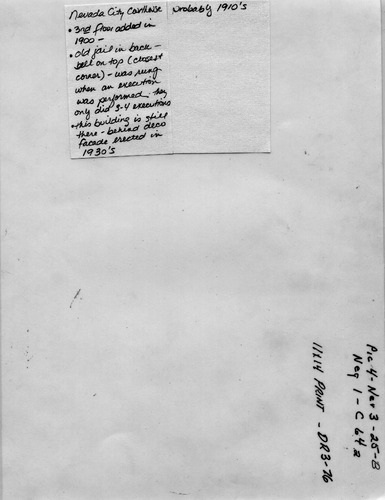 Nevada City Courthouse
• 3rd floor added in
1900 -
• old jail in back -
bell on top (closest
corner) - was rung
when an execution
was performed. they
only did 3-4 executions
• this building is still
there - behind deco
facade erected in
1930's
probably 1910's
Pic 4 - Nev 3 - 25 - B
Neg 1 - C 64a
11x14 PRINT - DR3-76